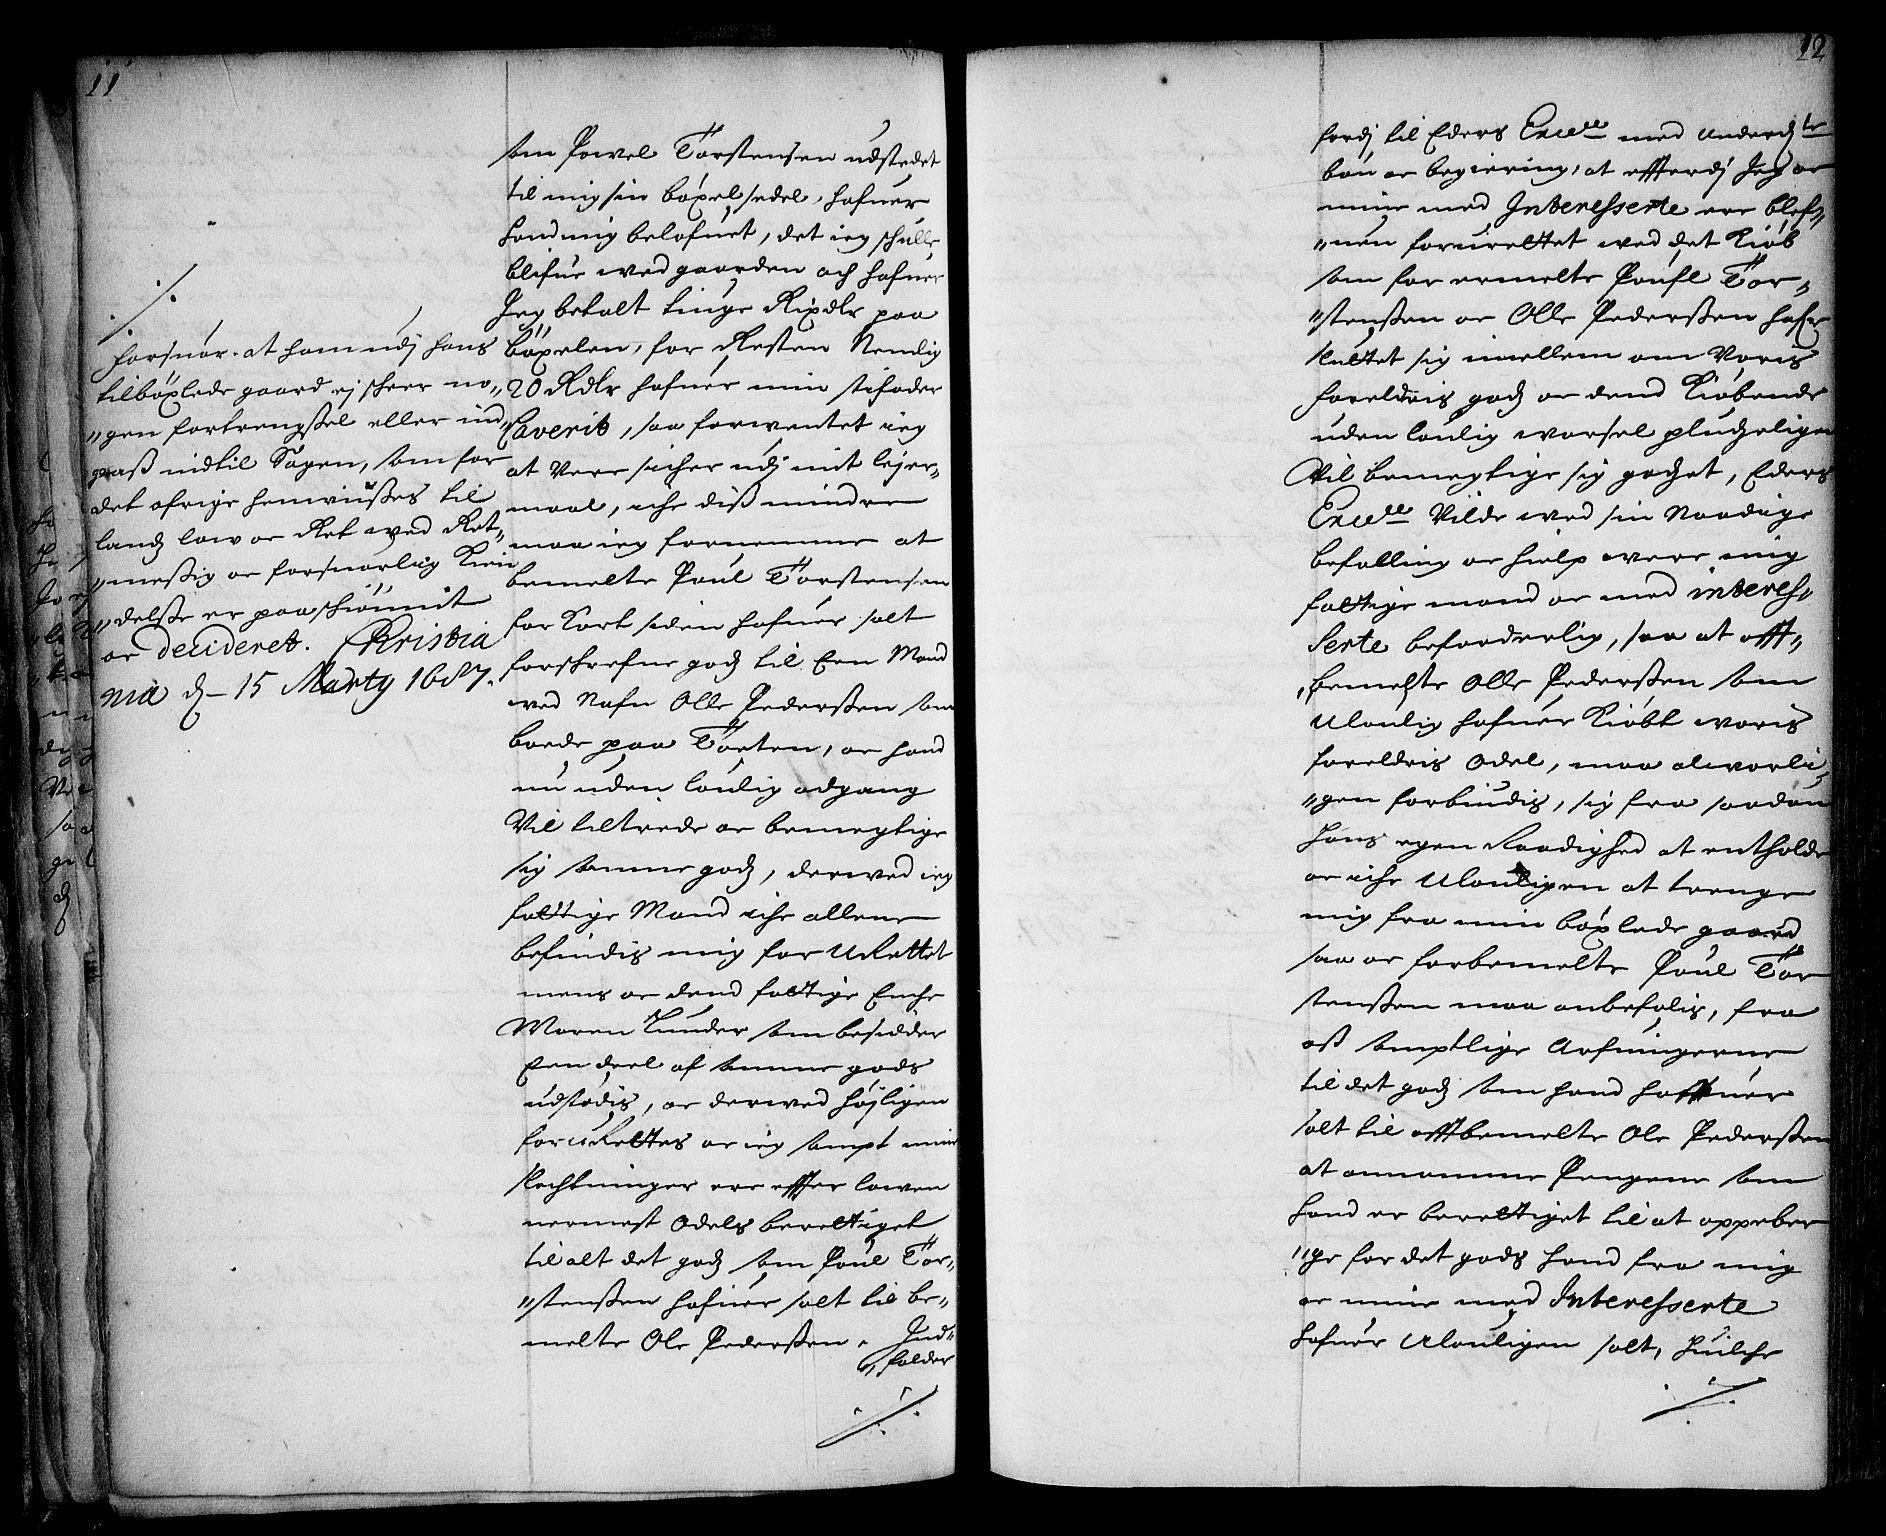 11
./.
forsuar. at ham udj hans
tilböxlede gaard ej skeer no„
„gen fortrengssel eller ind„
paß indtil Sagen, som for
det øfrige henviisses til
landz low oc Ret wed Ret„
„messig oc forsuarlig Kien
„delsse er paaskiönnit
oc decideret. Christia
nia d– 15 Marty 1687.
som Powel Torstensen udstedet
til mig sin böxelsedel, hafuer
hand mig belofuet, det ieg skulle
blifue wed gaarden och hafuer
Jeg betalt tiuge Rixdlr paa
böxelen, for Resten Nemlig
20 Rdlr hafuer min stifader
Caverit, saa forwentet ieg
at Vere sicher udj mit leyer„
maal, iche diß mindre
maa ieg fornemme at
bemelte Poul Torstensen
for Kort siden hafuer solt
forschrefne godz til Een Mand
wed Nafn Olle Pederssen som
boede paa Torten, oc hand
nu uden loulig adgang
Vil tiltrede oc bemegtige
sig samme godz, derwed ieg
fattige Mand iche allene
befindis mig for Urettet
mens oc dend fattige Enche
Maren Lunder som besidder
Een deel af samme gods
udstödis, oc derwed höjligen
forurettes oc ieg sampt mine
Slechtninger ere effter lowen
nermest Odels berettiget
til alt det godz som Poul Tor„
„stenssen hafuer solt til be„
melte Ole Pederssen. Ind„
„falder
./.
12
fordj til Eders Excell. med underd.te
bön oc begiering, at effterdj Jeg oc
mine med Interesserte ere blef„
„uen forurettet wed det Kiöb
som for ermelte Poufl Tor„
„stenssen oc Olle Pederssen hafr
sluttet sig imellem om Voris
foreldris godz oc dend Kiöbende
uden loulig warsel pludzeligen
Vil bemegtige sig godzet, Eders
Excell. Vilde wed sin Naadige
befalling oc hielp were mig
fattige mand oc med interes„
serte beforderlig, saa at offt„
„bemelte Olle Pederssen som
Uloulig hafuer Kiöbt woris
foreldris Odel, maa alworli„
„gen forbiudis, sig fra saadan
hans egen Raadighed at entholde
oc iche Ulouligen at trenge
mig fra min böxlede gaard
saa oc forbemelte Poul Tor
stenssen maa anbefalis, fra
oß samptlige Arfuingerne
til det godz som hand haffuer
solt til offtbemelte Ole Pederssen
at annamme Pengene som
hand er berettiget til at oppeber
„ge for det gods hand fra mig
oc mine med Interesserte
hafuer Ulouligen solt, huilche
./.